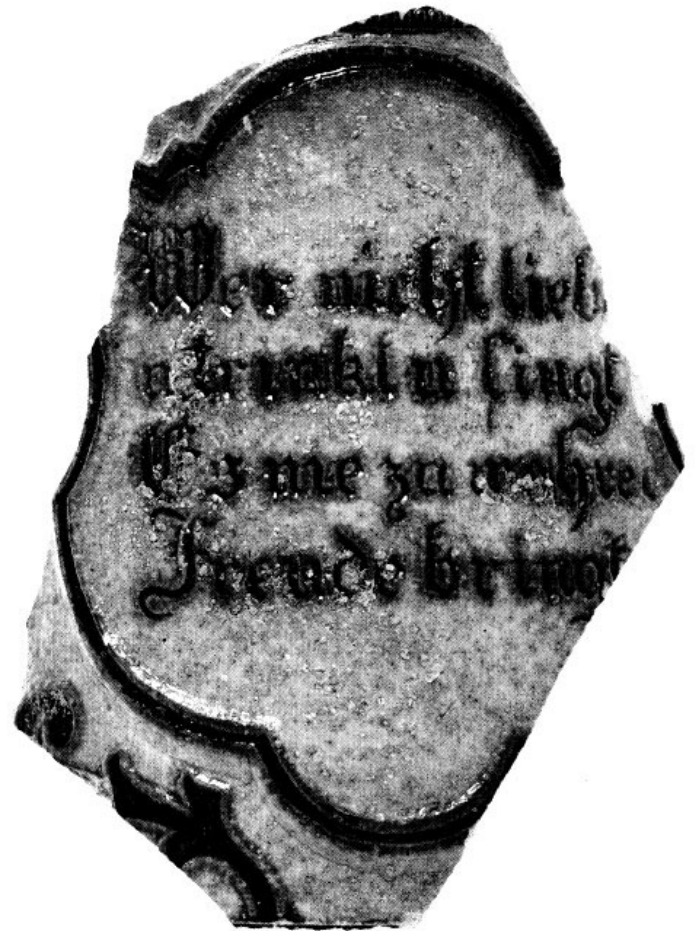 Wer nicht lieb
u trinkt u singt
Es nie zu wahre
Freude bringt